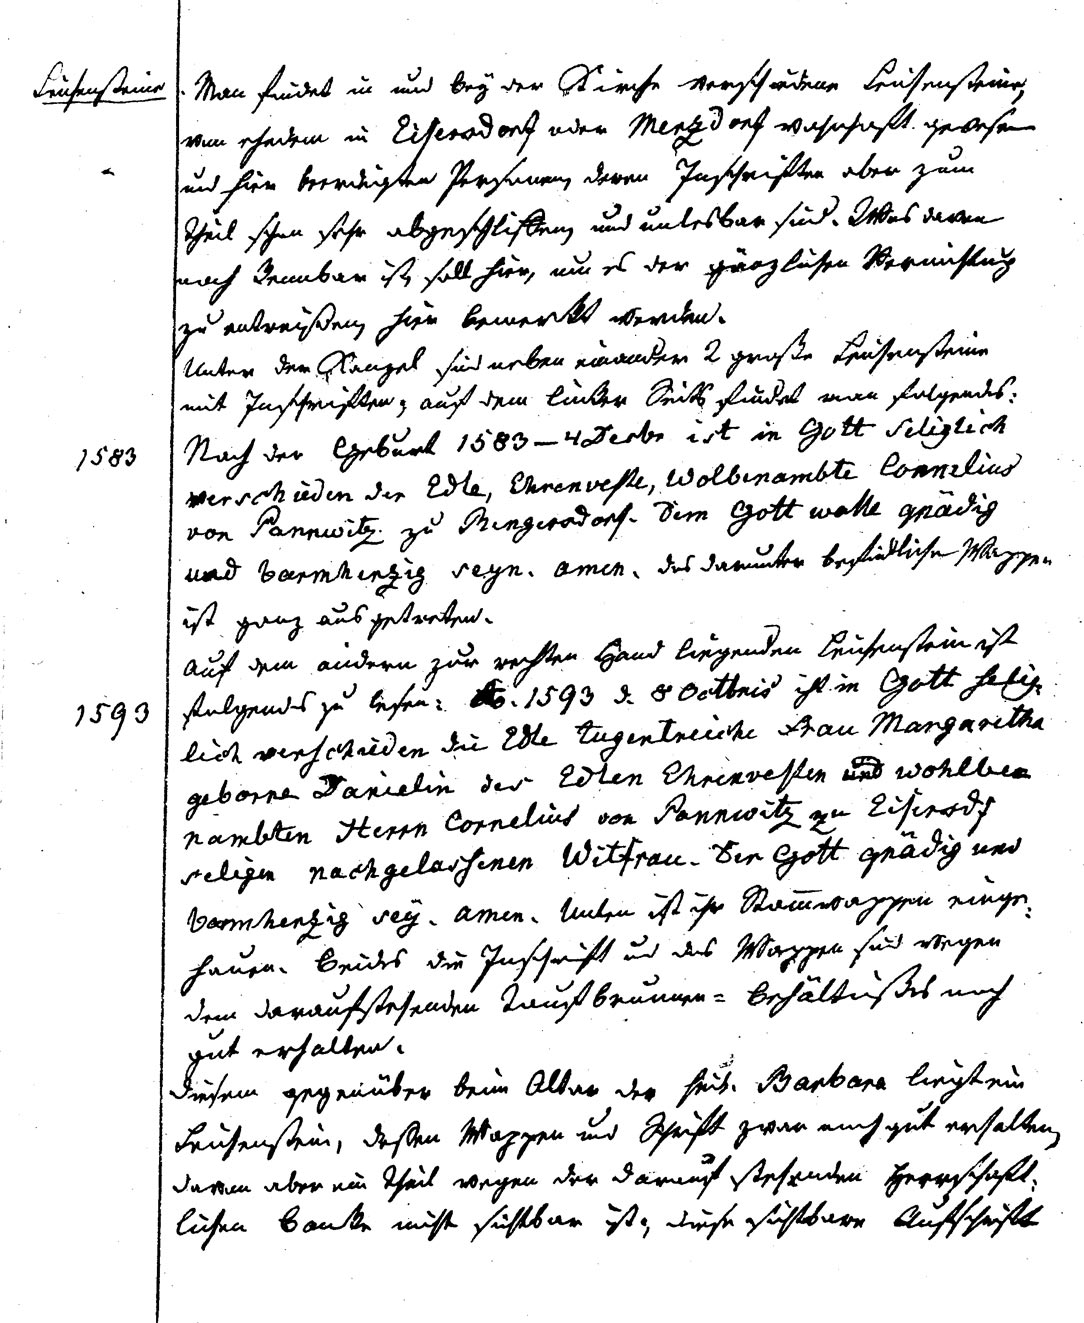 Leichensteine
Man findet in und bey der Kirche verschiedene Leichensteine,
von ehedem in Eisersdorf oder Merzdorf wohnhaft gewesen
und hier beerdigten Personen, deren Inschriften aber zum
Theil schon sehr abgeschliffen, und unlesbar sind. Was davon
noch kennbar ist, soll hier, um es der gänzlichen Vernichtung
zu entreißen, hier bemerkt werden.
Unter der Kanzel sind neben einander 2 große Leichensteine
mit Inschriften; auf dem linker Seits findet man folgendes:
1583
Nach der Geburt 1583 – 4 Decbr ist in Gott seliglich
verschieden der Edle, Ehrenveste, Wolbenambte Cornelius
von Pannwitz zu Rengersdorf. Dem Gott wolle gnädig
und barmherzig seyn. amen. das darunter befindliche Wappen
ist ganz ausgetreten.
Auf dem andern zur rechten Hand liegenden Leichenstein ist
1593
folgendes zu lesen: Ao. 1593 d. 8 Octbris ist in Gott selig-
lich verschieden die Edle tugentreiche Frau Margaretha
geborne Danielin des Edlen Ehrenvesten und wohlbe-
nambten Herrn Cornelius von Pannwitz zu Eisersdf
seligen nachgelassenen Witfrau. Der Gott gnädig und
barmherzig seÿ. amen. Unten ist ihr Stam̅wappen einge-
hauen. Beides die Inschrift und das Wappen sind wegen
dem daraufstehenden Taufbrunnen= Behältnißes noch
gut erhalten.
Diesem gegenüber beim Altar der heil. Barbara liegt ein
Leichenstein, deßen Wappen und Schrift zwar noch gut erhalten,
davon aber ein Theil wegen der darauf stehenden Herrschaft-
lichen Banke nicht sichtbar ist, diese sichtbare Aufschrift